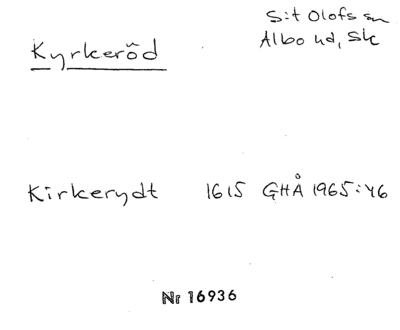 Kyrkeröd
S:t Olofs sn
Albo hd, Sk
Kirkerydt 1615 GHÅ 1965:46
Nr 16936